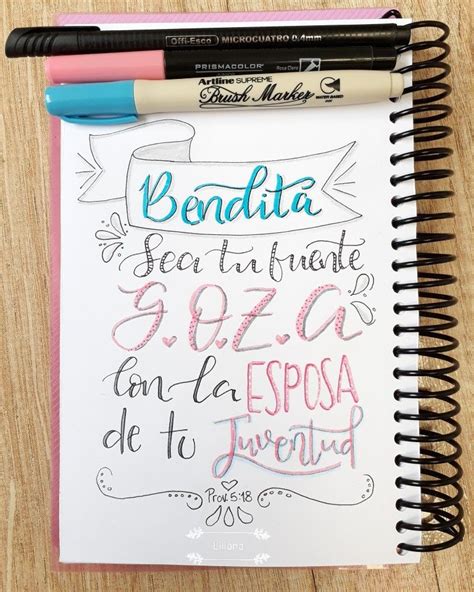 Offi-Esco MICROCUATRO 0.4mm
PRISMACOLOR
Artline SUPREME
Brush Marker
Bendita
Sea tu fuente
G.O.Z.A
con la ESPOSA
de tu Juventud
Prov. 5:18
Liliana